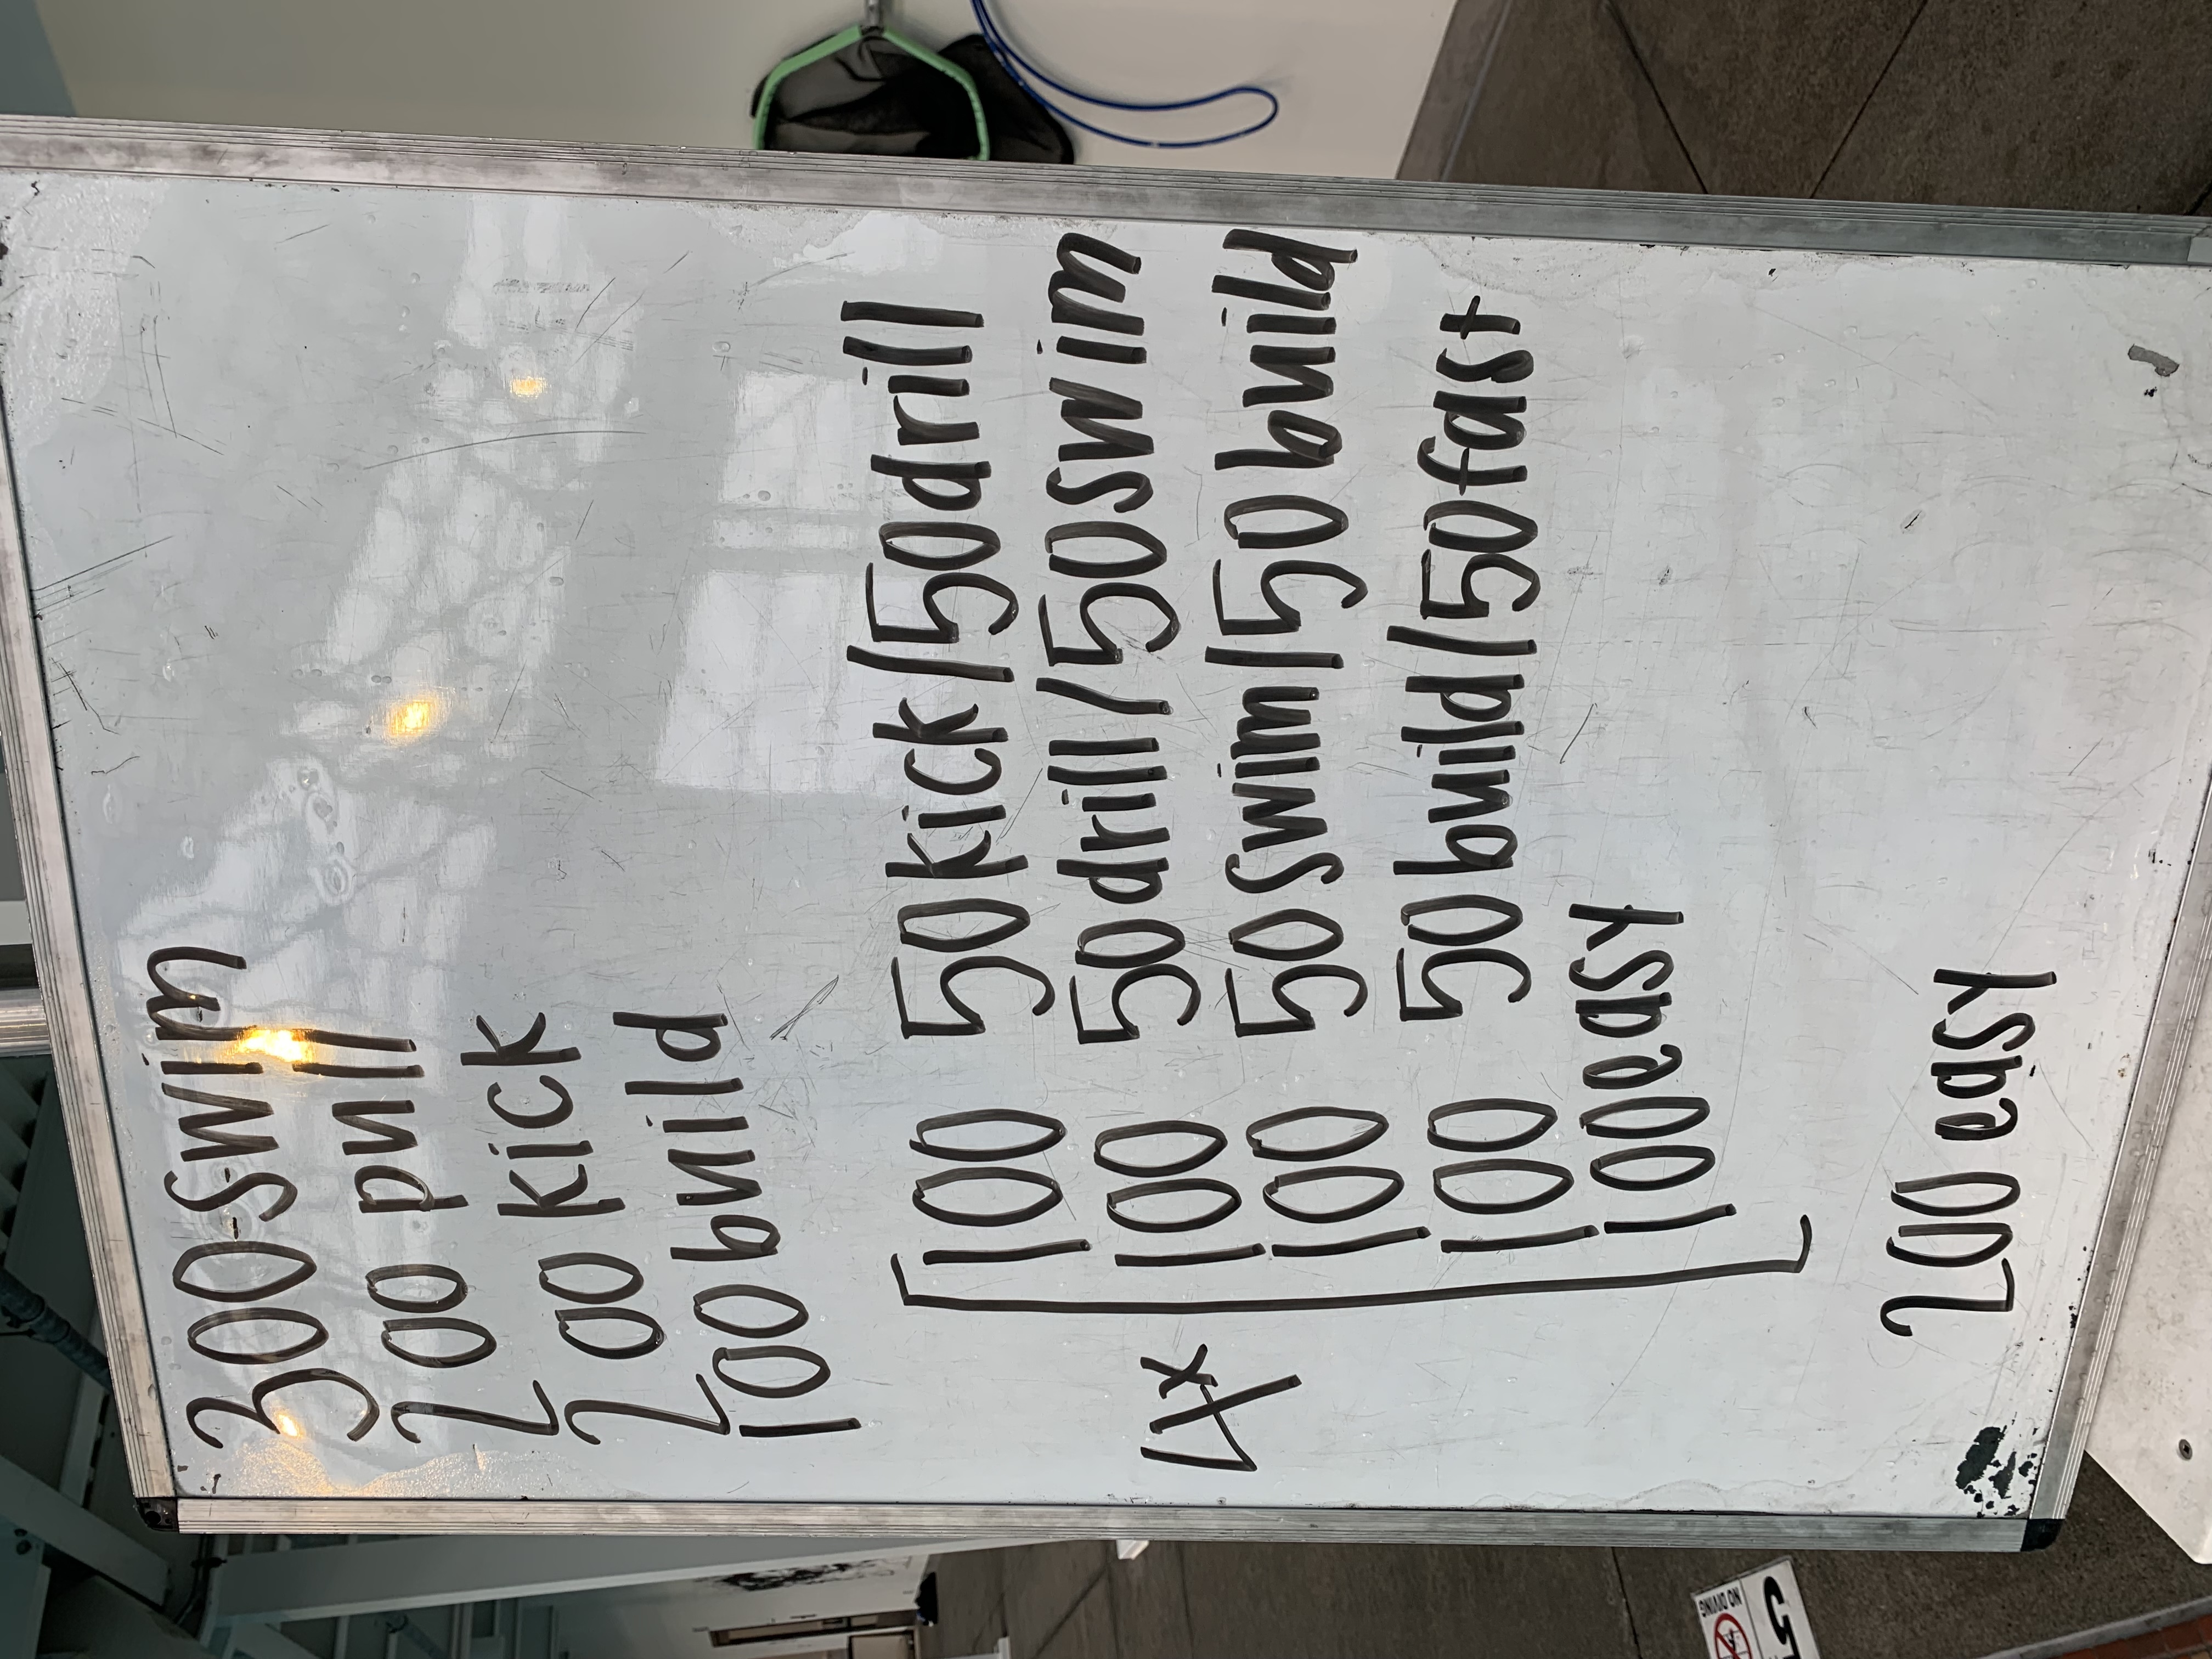 300 swim
200 pull
200 kick
100 build
4x
100 50 kick / 50 drill
100 50 drill / 50 swim
100 50 swim / 50 build
100 50 build / 50 fast
100 easy
200 easy
5
NO DIVING